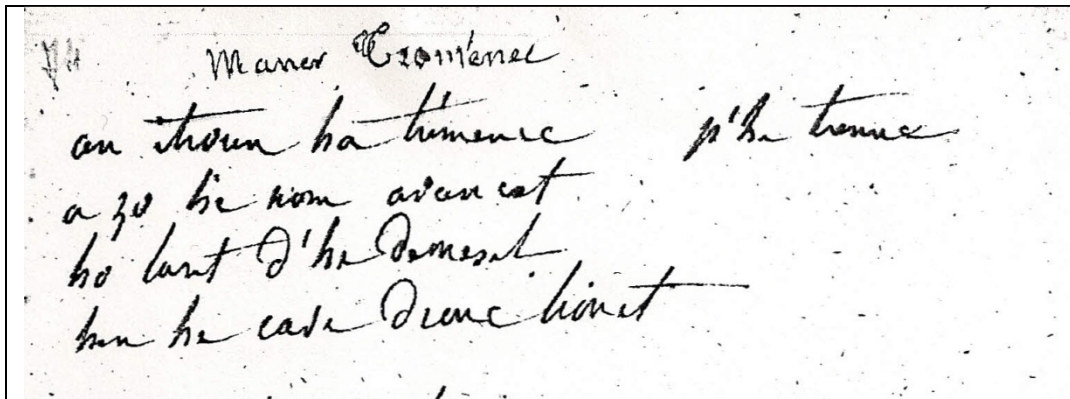 74 Maner Tromenec
an itroun ha trimenec p'he trenne
a zo he nom avancet
ho lavet d'he demesel
hen he cava drouc livet